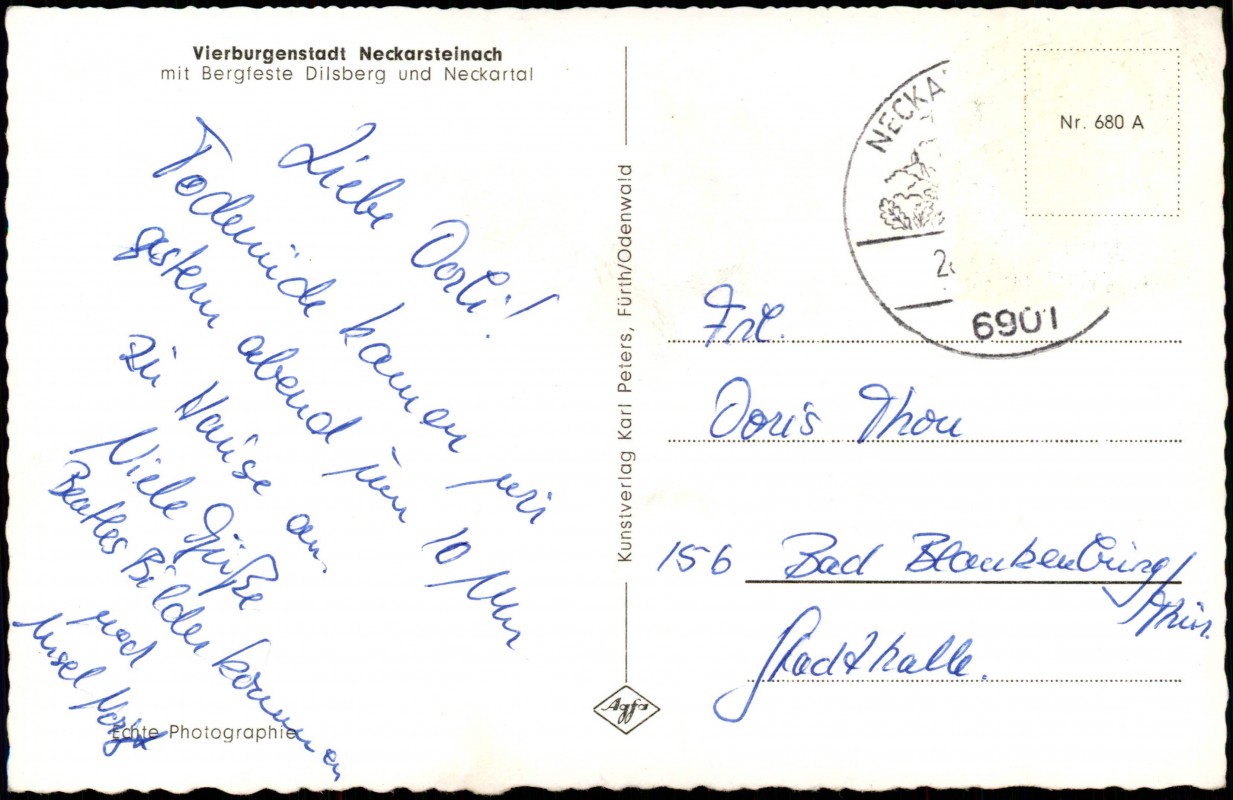 Vierburgenstadt Neckarsteinach
mit Bergfeste Dilsberg und Neckartal
Liebe Dorli!
Todmüde kamen wir
gestern abend um 10 Uhr
zu Hause an.
Viele Grüße
Beatles Bilder kommen
noch
Echte Photographie
Kunstverlag Karl Peters, Fürth/Odenwald
Agfa
NECKA
2
6901
Nr. 680 A
Frl.
Doris Thon
156 Bad Blankenburg/
Thür.
Stadthalle.